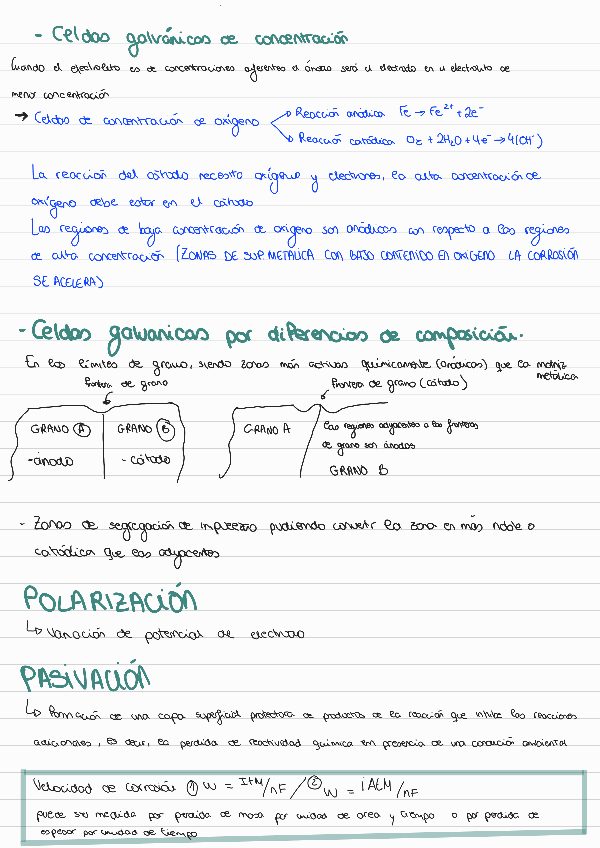 - Celdas galvánicas de concentración
Cuando el electrolito es de concentraciones diferentes el ánodo será el electrodo en el electrolito de
menor concentración
→ Celdas de concentración de oxígeno
Reacción anódica Fe → Fe²⁺ + 2e⁻
Reacción catódica O₂ + 2H₂O + 4e⁻ → 4(OH⁻)
La reacción del cátodo necesita oxígeno y electrones, la alta concentración de
oxígeno debe estar en el cátodo
Las regiones de baja concentración de oxígeno son anódicas con respecto a las regiones
de alta concentración (ZONAS DE SUP METÁLICA CON BAJO CONTENIDO EN OXÍGENO LA CORROSIÓN
SE ACELERA)
- Celdas galvanicas por diferencias de composición.
En los límites de grano, siendo zonas más activas químicamente (anódicas) que la matriz
metálica
frontera de grano
Frontera de grano (cátodo)
GRANO A
GRANO B
GRANO A
las regiones adyacentes a las fronteras
-ánodo
- cátodo
de grano son ánodos
GRANO B
- Zonas de segregación de impurezas pudiendo convertir la zona en más noble o
catódica que las adyacentes
POLARIZACIÓN
↳ Variación de potencial de electrodo
PASIVACIÓN
↳ Formación de una capa superficial protectora de productos de la reacción que inhibe las reacciones
adicionales, es decir, la perdida de reactividad química en presencia de una condición ambiental
Velocidad de corrosión ① W = I+M/nF / ② W = iAtM/nF
puede ser medida por perdida de masa por unidad de area y tiempo o por perdida de
espesor por unidad de tiempo